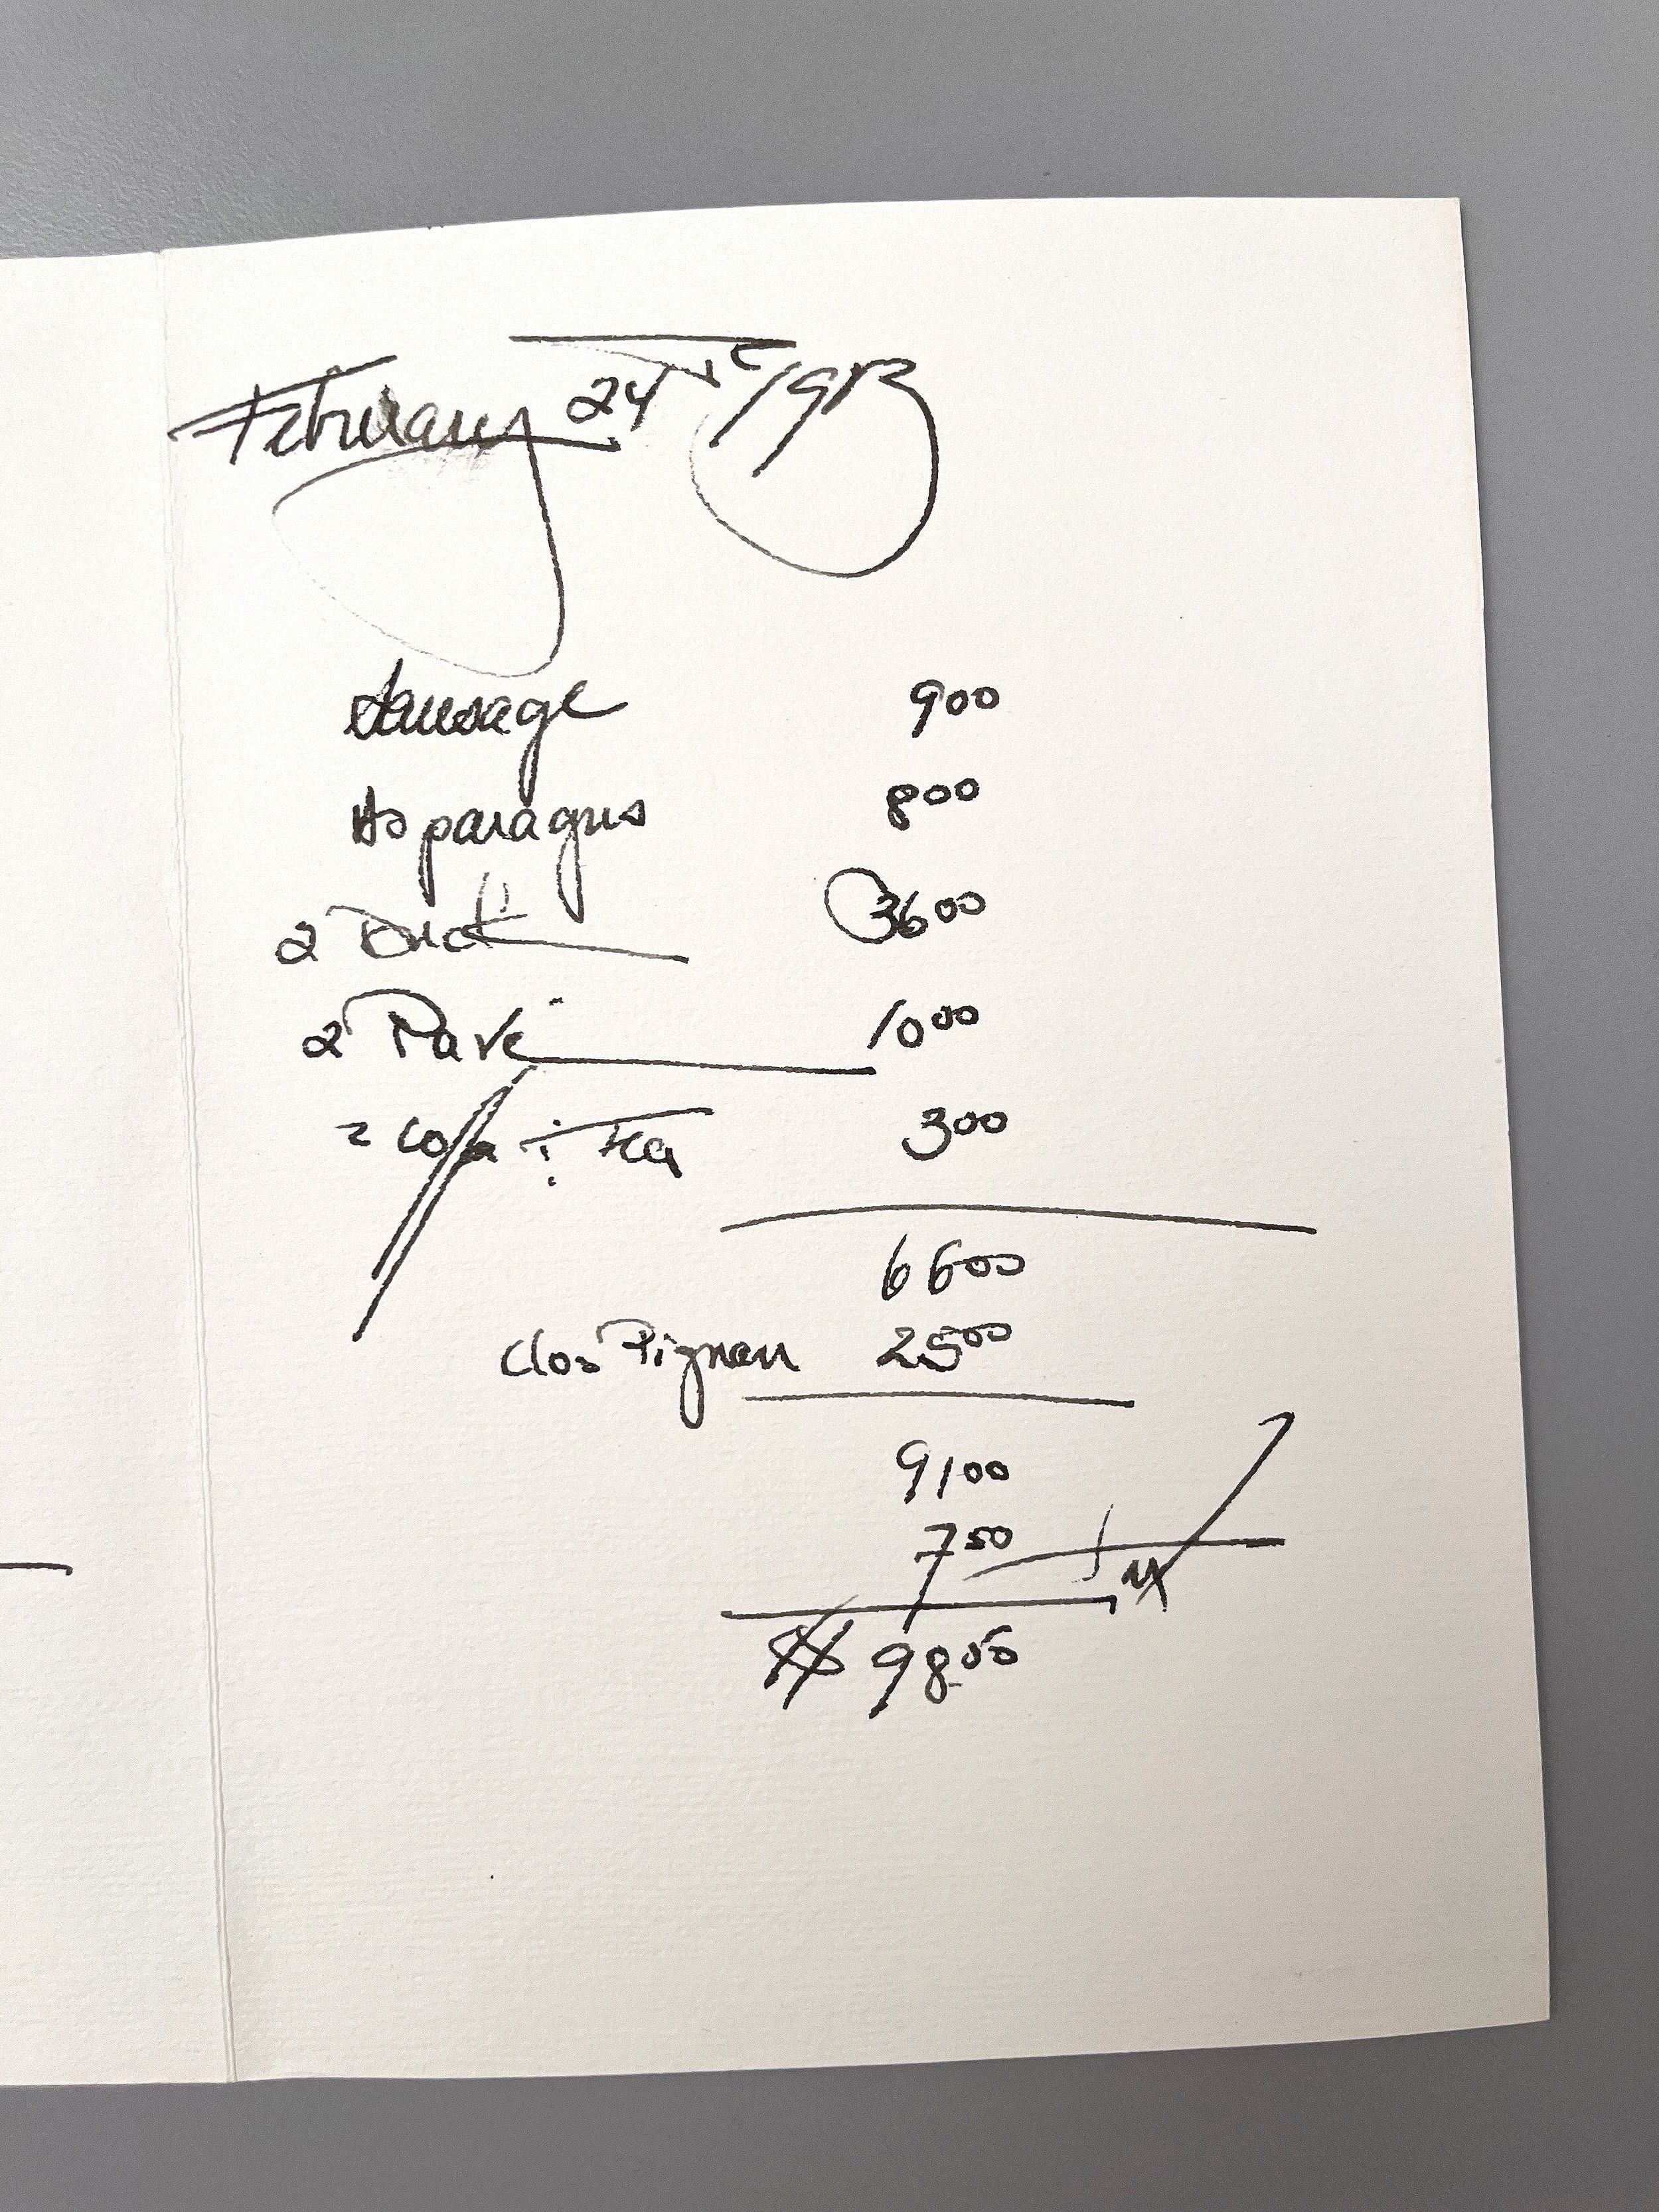 February 24 1983
Sausage 900
Asparagus 800
2 Duck 3600
2 Pavé 1000
2 Coffee : Tea 300
6600
Clos Pignan 2500
9100
750 tax
$ 9850